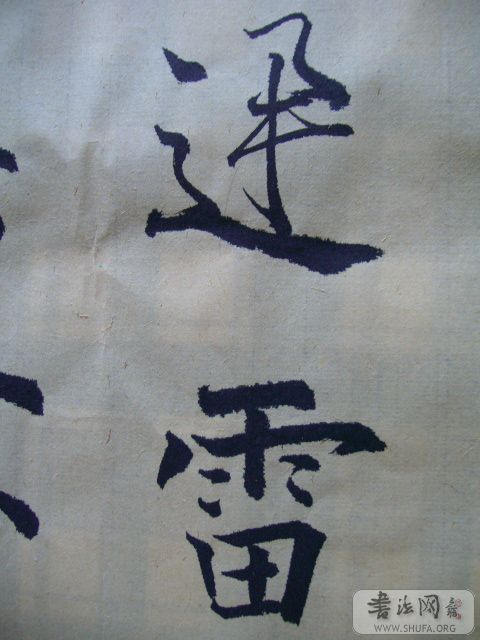 迅雷
書法网
WWW.SHUFA.ORG